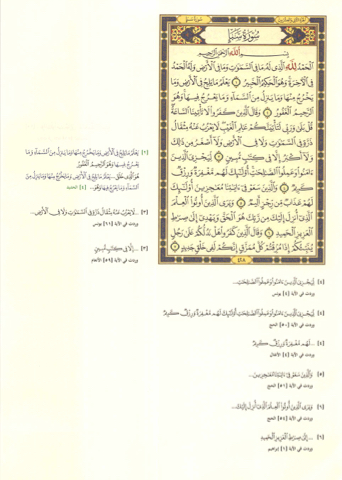 سُورَةُ سَبَإٍ
بِسْمِ اللَّهِ الرَّحْمَٰنِ الرَّحِيمِ
الْحَمْدُ لِلَّهِ الَّذِي لَهُ مَا فِي السَّمَاوَاتِ وَمَا فِي الْأَرْضِ وَلَهُ الْحَمْدُ
فِي الْآخِرَةِ وَهُوَ الْحَكِيمُ الْخَبِيرُ ١ يَعْلَمُ مَا يَلِجُ فِي الْأَرْضِ وَمَا
يَخْرُجُ مِنْهَا وَمَا يَنزِلُ مِنَ السَّمَاءِ وَمَا يَعْرُجُ فِيهَا وَهُوَ
الرَّحِيمُ الْغَفُورُ ٢ وَقَالَ الَّذِينَ كَفَرُوا لَا تَأْتِينَا السَّاعَةُ
قُلْ بَلَىٰ وَرَبِّي لَتَأْتِيَنَّكُمْ عَالِمِ الْغَيْبِ لَا يَعْزُبُ عَنْهُ مِثْقَالُ
ذَرَّةٍ فِي السَّمَاوَاتِ وَلَا فِي الْأَرْضِ وَلَا أَصْغَرُ مِن ذَٰلِكَ
وَلَا أَكْبَرُ إِلَّا فِي كِتَابٍ مُّبِينٍ ٣ لِّيَجْزِيَ الَّذِينَ
ءَامَنُوا وَعَمِلُوا الصَّالِحَاتِ أُولَٰئِكَ لَهُم مَّغْفِرَةٌ وَرِزْقٌ
كَرِيمٌ ٤ وَالَّذِينَ سَعَوْ فِي ءَايَاتِنَا مُعَاجِزِينَ أُولَٰئِكَ
لَهُمْ عَذَابٌ مِّن رِّجْزٍ أَلِيمٌ ٥ وَيَرَى الَّذِينَ أُوتُوا الْعِلْمَ
الَّذِي أُنزِلَ إِلَيْكَ مِن رَّبِّكَ هُوَ الْحَقَّ وَيَهْدِي إِلَىٰ صِرَاطِ
الْعَزِيزِ الْحَمِيدِ ٦ وَقَالَ الَّذِينَ كَفَرُوا هَلْ نَدُلُّكُمْ عَلَىٰ رَجُلٍ
يُنَبِّئُكُمْ إِذَا مُزِّقْتُمْ كُلَّ مُمَزَّقٍ إِنَّكُمْ لَفِي خَلْقٍ جَدِيدٍ ٧
٤٢٨
[٢] يَعْلَمُ مَا يَلِجُ فِي الْأَرْضِ وَمَا يَخْرُجُ مِنْهَا وَمَا يَنزِلُ مِنَ السَّمَاءِ وَمَا
يَعْرُجُ فِيهَا وَهُوَ الرَّحِيمُ الْغَفُورُ
[٣] ...لَا يَعْزُبُ عَنْهُ مِثْقَالُ ذَرَّةٍ فِي السَّمَاوَاتِ وَلَا فِي الْأَرْضِ...
وردت في الآية [٦١] يونس
[٣] ...إِلَّا فِي كِتَابٍ مُّبِينٍ
وردت في الآية [٥٩] الأنعام
[٤] لِّيَجْزِيَ الَّذِينَ ءَامَنُوا وَعَمِلُوا الصَّالِحَاتِ...
وردت في الآية [٤] يونس
[٤] لِّيَجْزِيَ الَّذِينَ ءَامَنُوا وَعَمِلُوا الصَّالِحَاتِ أُولَٰئِكَ لَهُم مَّغْفِرَةٌ وَرِزْقٌ كَرِيمٌ
وردت في الآية [٥٠] الحج
[٤] ...لَهُم مَّغْفِرَةٌ وَرِزْقٌ كَرِيمٌ
وردت في الآية [٤] الأنفال
[٥] وَالَّذِينَ سَعَوْ فِي ءَايَاتِنَا مُعَاجِزِينَ...
وردت في الآية [٥١] الحج
[٦] وَيَرَى الَّذِينَ أُوتُوا الْعِلْمَ الَّذِي أُنزِلَ إِلَيْكَ...
وردت في الآية [٥٤] الحج
[٦] ...إِلَىٰ صِرَاطِ الْعَزِيزِ الْحَمِيدِ
وردت في الآية [١] إبراهيم